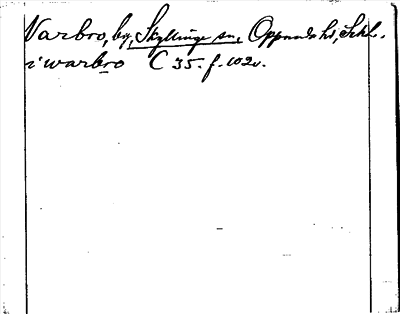 Varbro, by, Skyllinge sn, Oppunda hd, Skl.
i warbro C 35. f. 102v.